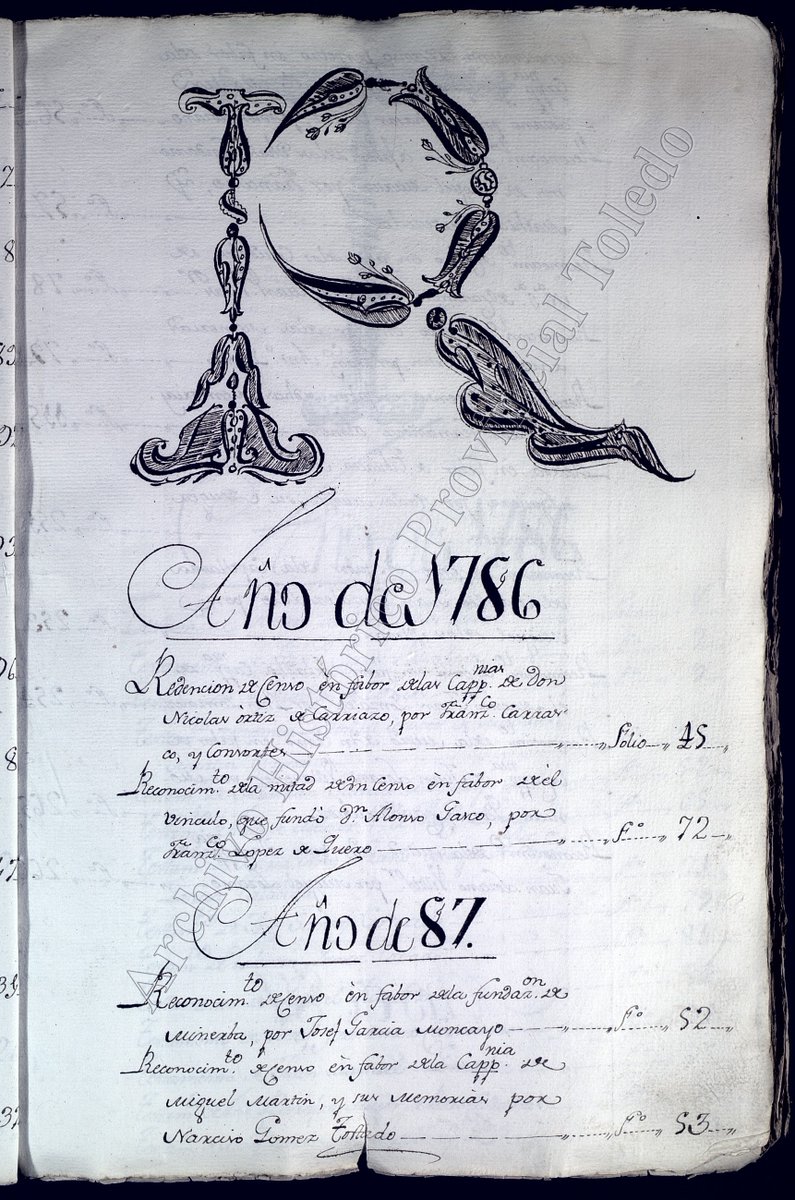 R
Año de 1786
Redencion de Censo en fabor de las Capp.nias de Don
Nicolas òrtiz de Carriazo, por Franz.co Carras-
co, y Consortes Folio 45
Reconocim.to de la mitad de un Censo èn fabor de èl
vinculo, que fundò D.n Alonso Gasco, por
Franz.co Lopez de Quero F.o 72
Año de 87.
Reconocim.to de Censo èn fabor de la fundaz.on de
Minerba, por Josef Garcia Moncayo F.o 52
Reconocim.to de Censo èn fabor de la Capp.nia de
Miguel Martin, y sus Memorias por
Narciso Gomez Tostado F.o 53
Archivo Histórico Provincial Toledo